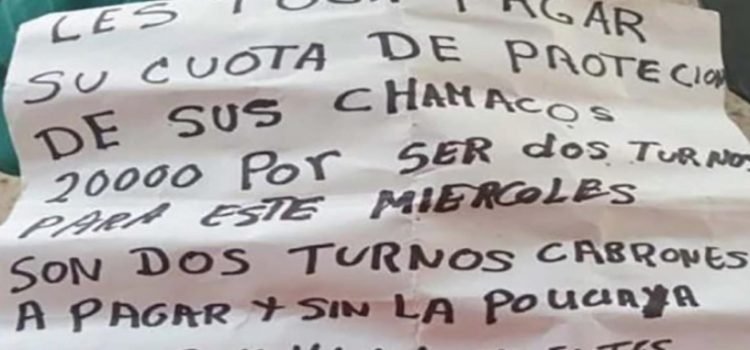 LES TOCA PAGAR
SU CUOTA DE PROTECION
DE SUS CHAMACOS
20000 POR SER dOS TURNOS
PARA ESTE MIERCOLES
SON DOS TURNOS CABRONES
A PAGAR Y SIN LA